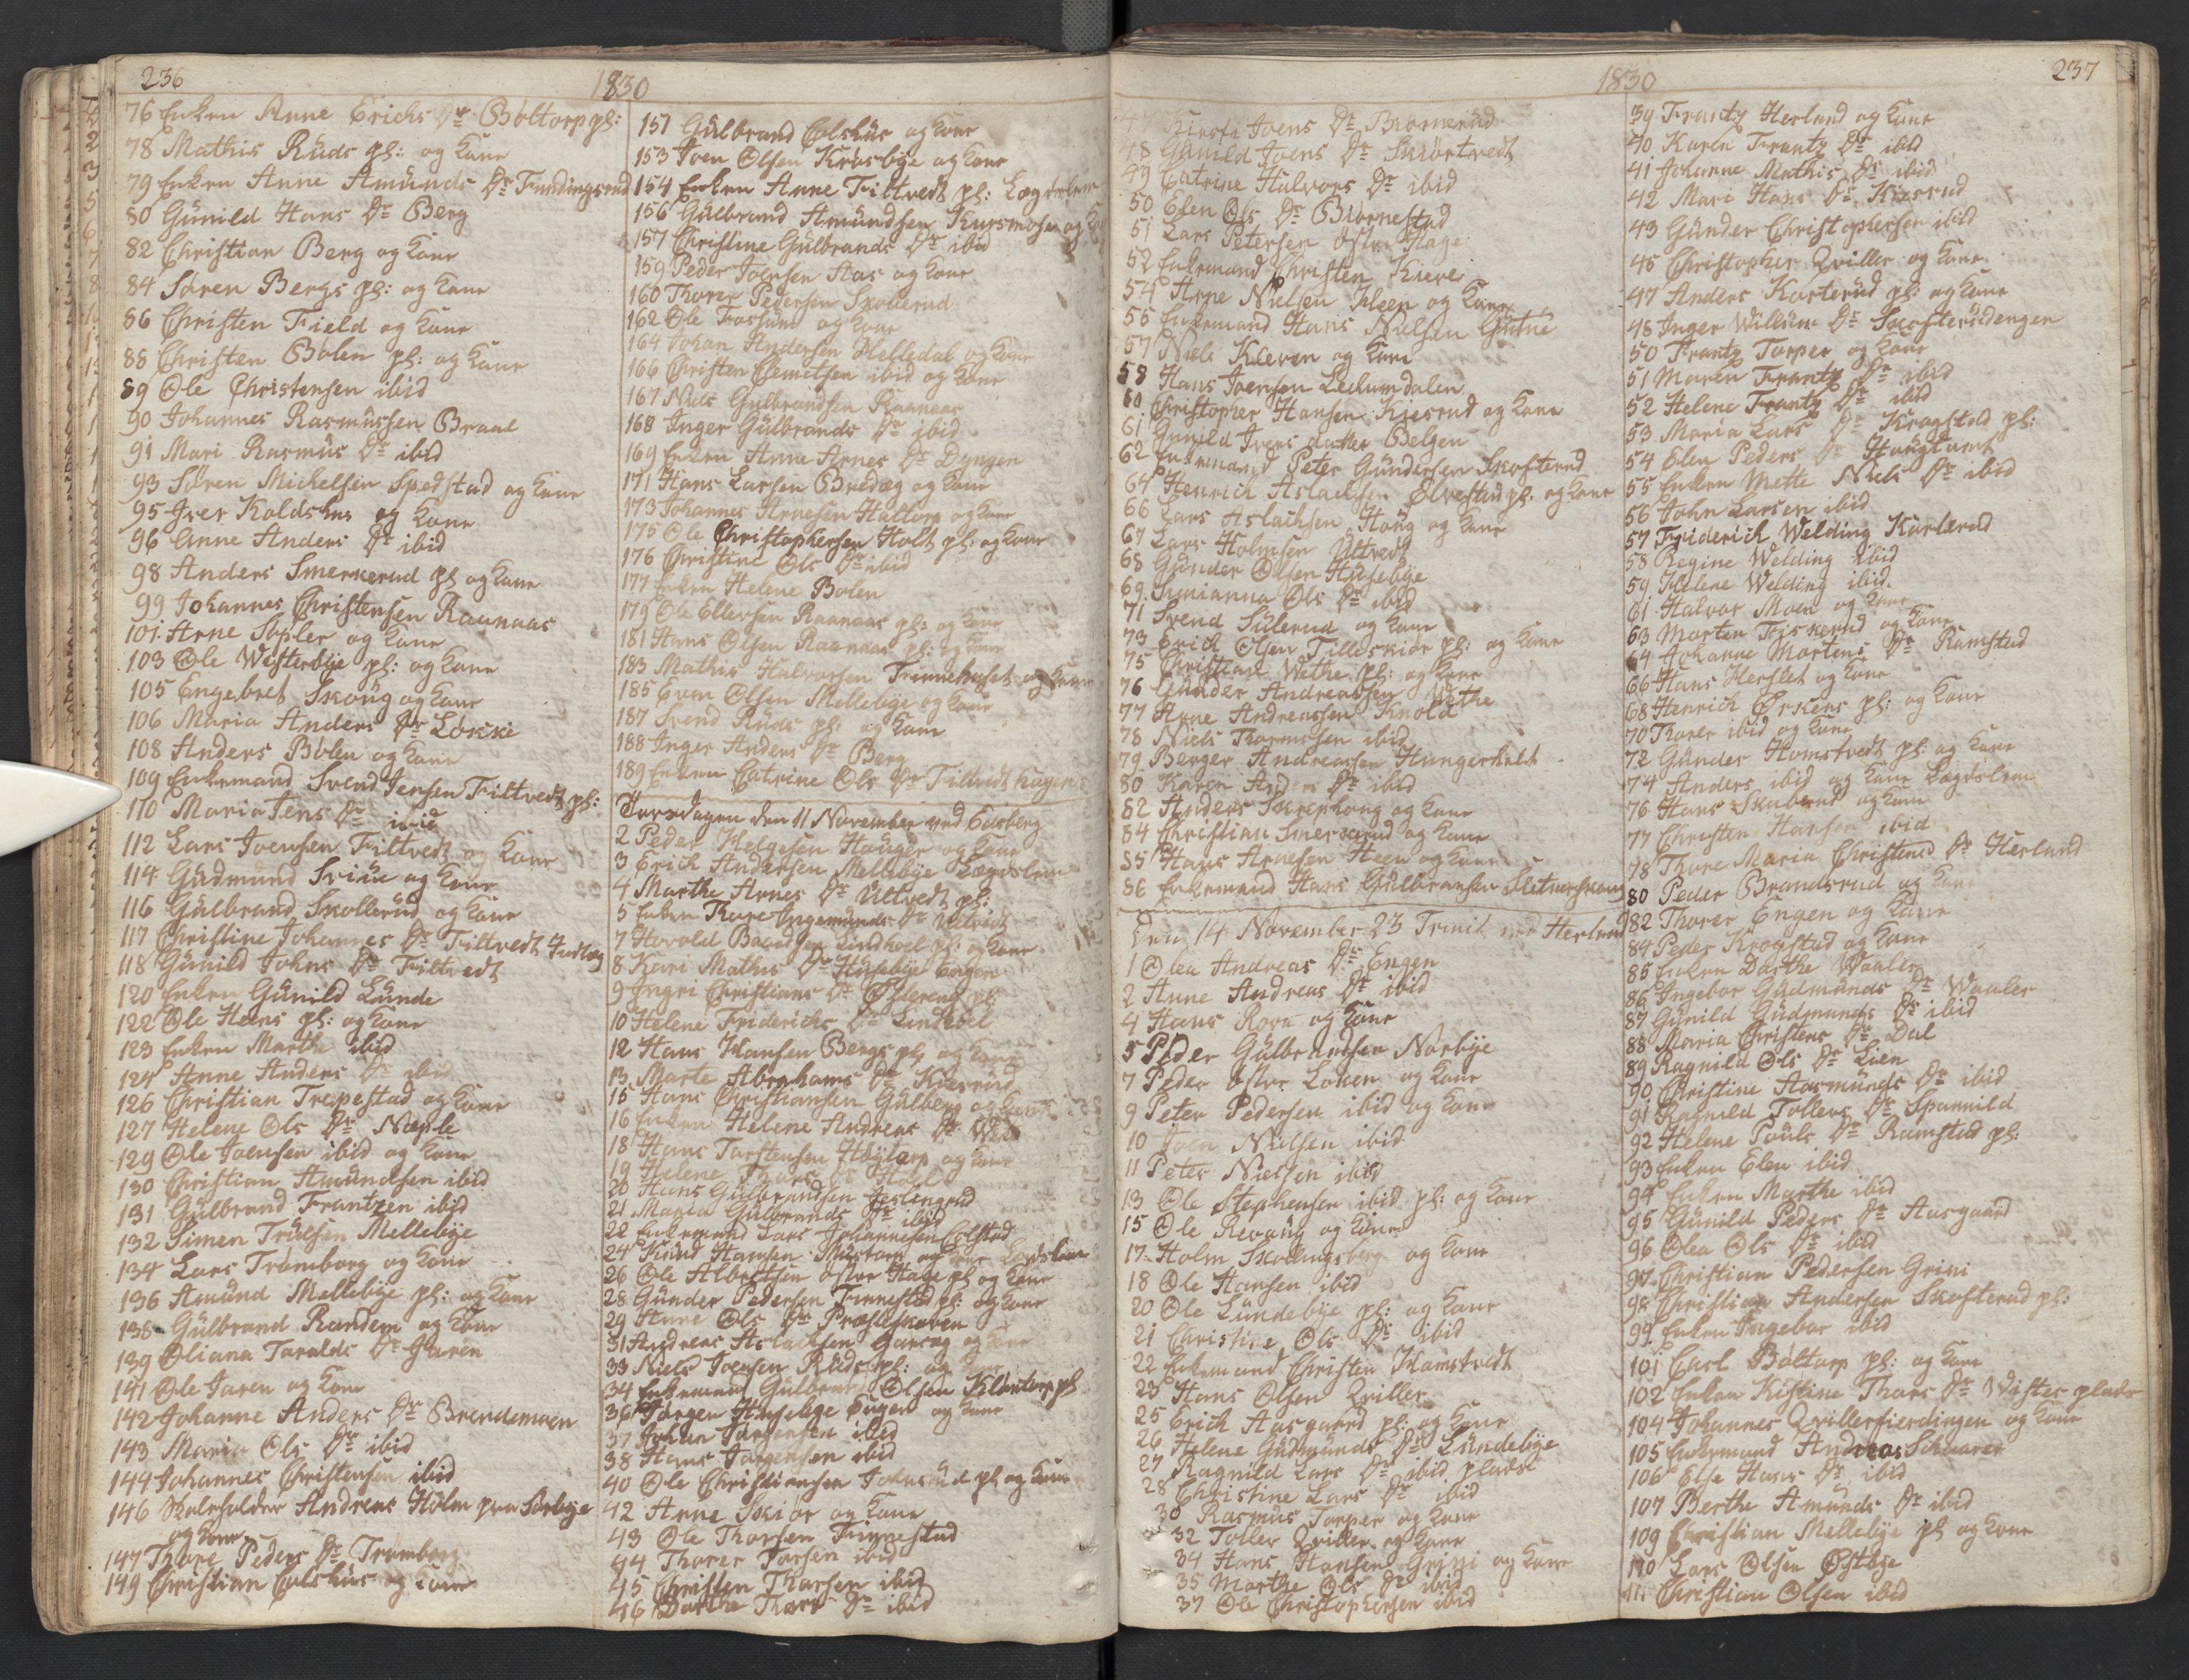 236
1830
76 Enken Anne Erichs Dr Boltorp pl:
78 Mathis Ruds pl: og Kone
79 Enken Anne Amünds Dr Fundingsrud
80 Günild Hans Dr Berg
82 Christian Berg og Kone
84 Søren Bergs pl: og Kone
86 Christen Field og Kone
88 Christen Bolen pl: og Kone
89 Ole Christensen ibid
90 Johannes Rasmüssen Braae
91 Mari Rasmüs Dr ibid
93 Søren Michelsen Spedstad og Kone
95 Iver Koldshus og Kone
96 Anne Anders Dr ibid
98 Anders Smerkerud pl og Kone
99 Johannes Christensen Raanaas
101 Arne Sæler og Kone
103 Ole Westerbÿe pl: og Kone
105 Engebret Skoüg og Kone
106 Maria Anders Dr Løkke
108 Anders Bølen og Kone
109 Enkemand Svend Jensen Filtvedt pl:
110 Maria Jens Dr ibid
112 Lars Joensen Filtvedt og Kone
114 Güdmund og Kone
116 Gülbrand Skollerüd og Kone
117 Christine Johannes Dr Filtvedt
118 Günild Johns Dr Filtvedt
120 Enken Günild Lünde
122 Ole Heens pl: og Kone
123 Enken Marthe ibid
124 Anne Anders Dr ibid
126 Christian Trepestad og Kone
127 Helene Ols Dr Næple
129 Ole Joensen ibid og Kone
130 Christian Amündsen ibid
131 Gülbrand Frantzen ibid
132 Simen Trülsen Mellebÿe
134 Lars Tramborg og Kone
136 Amünd Mellebÿe pl: og Kone
138 Gülbrand Randem og Kone
139 Oliana Taralds Dr Jaren
141 Ole Jaren og Kone
142 Johanne Anders Dr Brendemoen
143 Maria Ols Dr ibid
144 Johannes Christensen ibid
146 Skoleholder Andreas Holm paa Sørbÿe
og Kone
147 Thore Peders Dr Tramborg
149 Christian Colshüs og Kone
151 Gülbrand Colshüs og Kone
153 Joen Olsen Krosbÿe og Kone
154 Enken Anne Filtvedt pl: Lægdslem
156 Gülbrand Amündsen Kürsmosen og
157 Christine Gülbrands Dr ibid
159 Peder Joensen Aas og Kone
160 Thorer Pedersen Skollerud
162 Ole Fossüm og Kone
164 Johan Andersen Helledal og Kone
166 Christen Clemetsen ibid og Kone
167 Niels Gülbrandsen Raanaas
168 Inger Gülbrands Dr ibid
169 Enken Anne Arnes Dr Dyngen
171 Hans Larsen Bredæg og Kone
173 Johannes Arnesen Haltorp og Kone
175 Ole Christophersen Holt pl: og Kone
176 Christine Ols Dr ibid
177 Enken Helene Bolen
179 Ole Ellevsen Raanaas pl: og Kone
181 Hans Olsen Raanaas pl: og Kone
183 Mathis Halvorsen Trinnehuset og Kone
185 Even Olsen Mellebÿe og Kone
187 Svend Ruds pl: og Kone
188 Inger Anders Dr Berg
189 Enken Catrine Ols Dr Filtvedthagen
Torsdagen den 11 November ved Eidsberg
2 Peder Helgesen Haüger og Kone
3 Erich Andersen Mellebÿe Lægdslem
4 Marthe Arnes Dr Ultvedt pl:
5 Enken Thore Ingemünds Dr Ultvedt
7 Harald Lindhoel pl: og Kone
8 Kari Mathis Dr Hüsebÿe Engen
9 Ingri Christians Dr pl:
10 Helene Friderichs Dr Lindhoel
12 Hans Hansen Bergs pl: og Kone
13 Marte Abrahams Dr Kiesrüd
15 Hans Christiansen Gülberg og Kone
16 Enken Helene Andreas Dr
18 Hans Torstensen Høÿtorp og Kone
19 Helene Thors Dr
20 Hans Gülbrandsen Jeslingrud
21 Maria Gülbrands Dr ibid
22 Enkemand Lars Johannesen Colstad
24 Knüd Hansen og Kone Lægdslem
26 Ole Albertsen østre Hage pl: og Kone
28 Günder Pedersen Finnestad pl: og Kone
29 Anne Ols Dr Præsteskoven
31 Andreas Aslachsen Gaasrg og Kone
33 Niels Joensen Ruds pl: og Kone
34 Enkemand Gülbran Olsen Klantorp pl
36 Jørgen Hüsebÿe Engen og Kone
37 Johan Jørgensen ibid
38 Hans Jørgensen ibid
40 Ole Christiansen pl og Kone
42 Arne Skiør og Kone
43 Ole Thorsen Finnestad
44 Thorer Thorsen ibid
45 Christen Thorsen ibid
46 Dorthe Thors Dr ibid
1830
237
47 Joens Dr Bjørnerüd
48 Günild Joens Dr Skiørtvedt
49 Catrine Halvors Dr ibid
50 Elen Ols Dr Biørnestad
51 Lars Petersen østre Hage
52 Enkemand Christen Kiere
54 Arne Nielsen Heen og Kone
55 Enkemand Hans Nielsen Gütue
57 Niels Kleven og Kone
58 Hans Joensen Lechumdalen
60 Christopher Hansen Kiesrud og Kone
61 Gunild Ivers datter Belgen
62 Enkemand Peter Gündersen Skofterud
64 Henrich Aslachsen Elvestad pl: og Kone
66 Lars Aslachsen Høüg og Kone
67 Lars Holmsen Ultvedt
68 Günder Olsen Hüsebÿe
69 Ols Dr ibid
71 Svend Sülerud og Kone
73 Erich Olsen Tilleskiør pl: og Kone
75 Christian Wethe pl: og Kone
76 Günder Andreassen Wethe
77 Arne Andreassen Knold
78 Niels Thoressen ibid
79 Berger Andreassen Hungerholt
80 Karen Anders Dr ibid
82 Anders Skrephoug og Kone
84 Christian Smerkerud og Kone
85 Hans Arnesen Heen og Kone
86 Enkemand Hans Gülbransen Slitnerskoug
Den 14 November 23 Trinit ved Herland
1 Olea Andreas Dr Engen
2 Anne Andreas Dr ibid
4 Hans Rova og Kone
5 Peder Gülbrandsen Norbÿe
7 Peder østre Loken og Kone
9 Peter Pedersen ibid og Kone
10 Joen Nielsen ibid
11 Peter Nielsen ibid
13 Ole Stephensen ibid pl: og Kone
15 Ole Revaüg og Kone
17 Holm Skollingsberg og Kone
18 Ole Hansen ibid
20 Ole Lündebÿe pl: og Kone
21 Christine Ols Dr ibid
22 Enkemand Christen Hamstvedt
23 Hans Olsen Qviller
25 Erich Aasgaard pl: og Kone
26 Helene Güdmünds Dr Lündebÿe
27 Ragnild Lars Dr ibid pladse
28 Christine Lars Dr ibid
30 Rasmüs Torper og Kone
32 Toller Qviller og Kone
34 Hans Hansen Grini og Kone
35 Marthe Ols Dr ibid
37 Ole Christophersen ibid
39 Frantz Herland og Kone
40 Karen Frantz Dr ibid
41 Johanne Mathis Dr ibid
42 Mari Hans Dr Kiesrud
43 Günder Christophersen ibid
45 Christopher Qviller og Kone
47 Anders Korterüd pl: og Kone
48 Inger Willüm Dr Skofterüdengen
50 Frantz Torper og Kone
51 Maren Frantz Dr ibid
52 Helene Frantz Dr ibid
53 Maria Lars Dr Kragstad pl:
54 Elen Peders Dr Haügtomt
55 Enken Mette Niels Dr ibid
56 John Larsen ibid
57 Friderich Welding Karlsrud
58 Regine Welding ibid
59 Helene Welding ibid
61 Halvor Moen og Kone
63 Morten Friskerud og Kone
64 Johanne Mortens Dr Ramstad
66 Hans Herslet og Kone
68 Henrich Ørskens pl: og Kone
70 Thorer ibid og Kone
72 Günder Homstvedt pl: og Kone
74 Anders ibid og Kone Lægdslem
76 Hans Skuberud og Kone
77 Christen Hansen ibid
78 Thore Maria Christens Dr Herland
80 Peder Brandsrud og Kone
82 Thorer Engen og Kone
84 Peder Krogstad og Kone
85 Enken Dorthe Waaler
86 Ingebor Güdmünds Dr Waaler
87 Günild Güdmunds Dr ibid
88 Maria Christens Dr Dal
89 Ragnild Ols Dr Lien
90 Christine Aasmünds Dr ibid
91 Ragnild Tollers Dr Spannild
92 Helene Poüls Dr Ramstad pl:
93 Enken Elen ibid
94 Enken Marthe ibid
95 Günild Peders Dr Aasgaard
96 Olea Ols Dr ibid
97 Christian Pedersen Grini
98 Christian Andersen Skofterud pl:
99 Enken Ingebor ibid
101 Carl Boltorp pl: og Kone
102 Enken Kistine Thors Dr Wister plads
104 Johannes Qvillerfierdingen og Kone
105 Enkemand Andreas Schwarer
106 Else Hans Dr ibid
107 Berthe Amünds Dr ibid
109 Christian Mellebÿe pl og Kone
110 Lars Olsen Østbÿe
111 Christian Olsen ibid